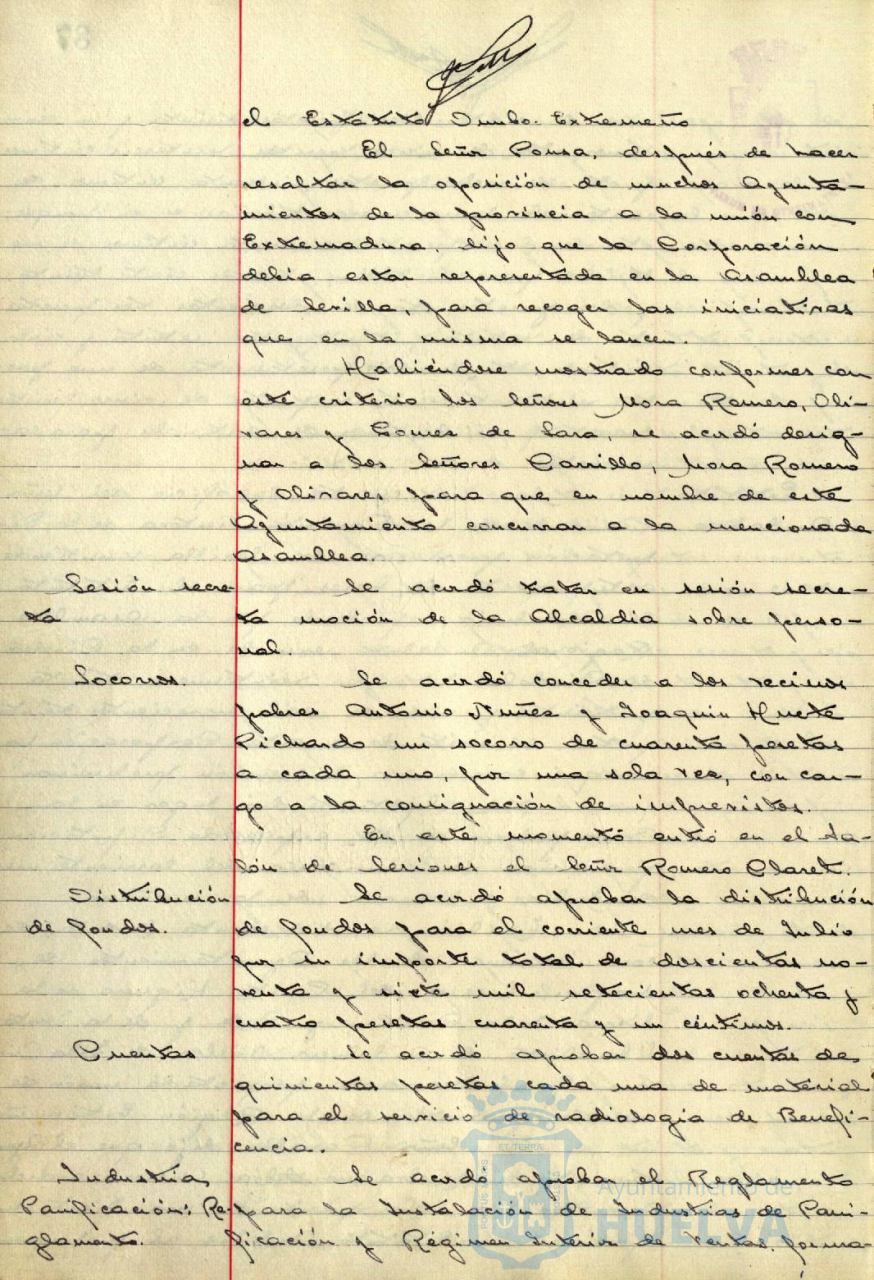 el Estatuto Onubo-Extremeño
El Señor Ponsa, después de hacer
resaltar la oposición de muchos Ayunta-
mientos de la provincia a la unión con
Extremadura, dijo que la Corporación
debía estar representada en la Asamblea
de Sevilla, para recoger las iniciativas
que en la misma se lancen.
Habiéndose mostrado conformes con
este criterio los Señores Mora Romero, Oli-
vares y Gomez de Lara, se acordó desig-
nar a los Señores Carrillo, Mora Romero
y Olivares para que en nombre de este
Ayuntamiento concurran a la mencionada
Asamblea.
Sesión secre-
ta
Se acordó tratar en sesión secre-
ta moción de la Alcaldia sobre perso-
nal.
Socorros.
Se acordó conceder a los vecinos
pobres Antonio Nuñez y Joaquin Huete
Pichardo un socorro de cuarenta pesetas
a cada uno, por una sola vez, con car-
go a la consignación de imprevistos.
En este momento entró en el Sa-
lón de Sesiones el Señor Romero Claret.
Distribución
de fondos.
Se acordó aprobar la distribución
de fondos para el corriente mes de Julio
por su importe total de doscientas no-
venta y siete mil setecientas ochenta y
cuatro pesetas cuarenta y un céntimos.
Cuentas
Se acordó aprobar dos cuentas de
quinientas pesetas cada una de material
para el servicio de radiología de Benefi-
cencia.
Industria
Panificación: Re-
glamento.
Se acordó aprobar el Reglamento
para la Instalación de Industrias de Pani-
ficación y Régimen Interior de Ventas, forma-
Ayuntamiento de
HUELVA